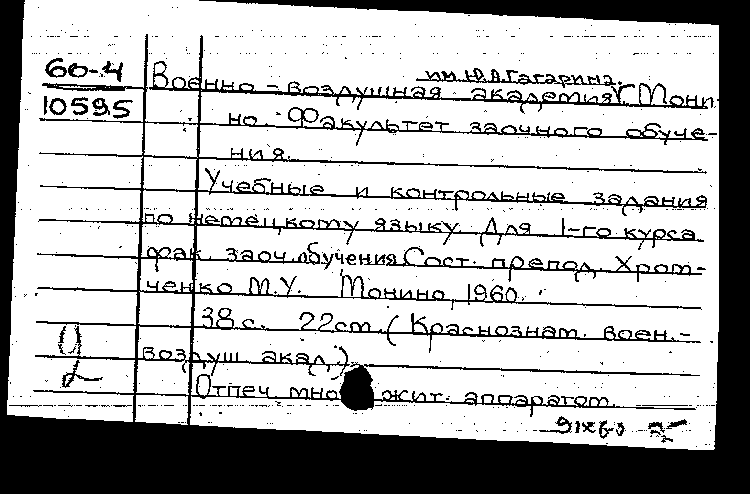 60-4
10595
им. Ю.А. Гагарина.
Военно-воздушная академия. Мони-
но. Факультет заочного обуче-
ния.
Учебные и контрольные задания
по немецкому языку. Для 1-го курса
фак. заоч. обучения. Сост. препод. Хром-
ченко М.У. Монино, 1960.
38 с. 22 cm. (Краснознам. воен.-
воздуш. акад.)
Отпеч. множит. аппаратом.